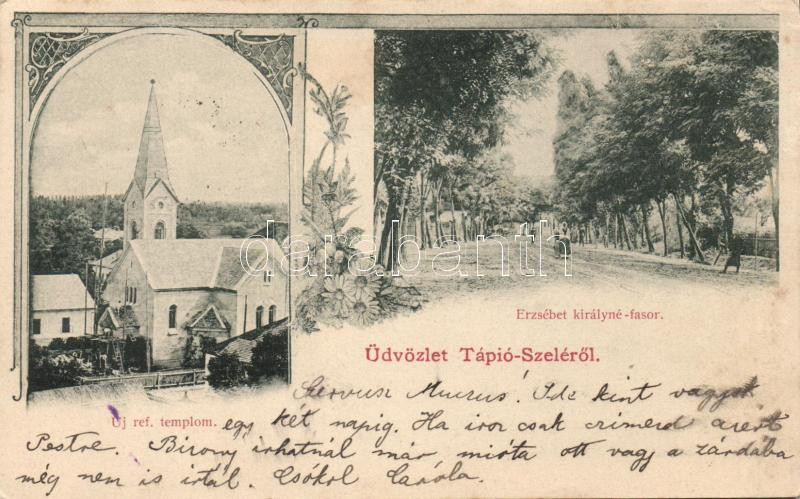 Erzsébet királyné-fasor.
Üdvözlet Tápió-Szeléről.
Új ref. templom.
Servusz Muczus! Ide kint vagyok
egy két napig. Ha irsz csak czimezd azért
Pestre. Bizony irhatnál már mióta ott vagy a zárdába
még nem is irtál. Csókol Caróla.
darabanth